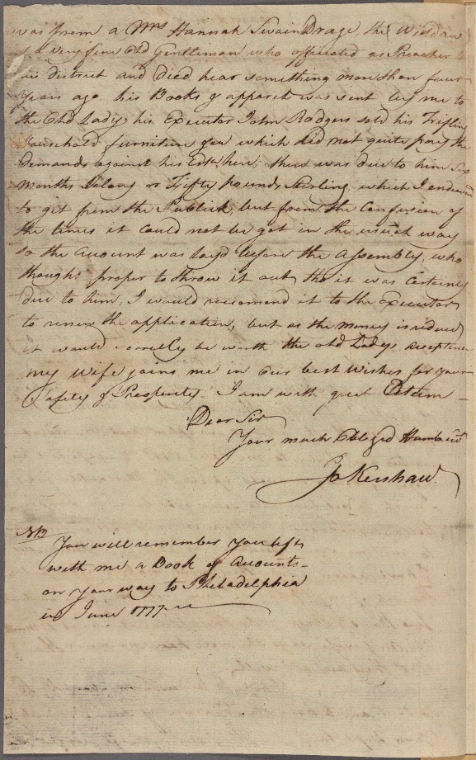 was from a Mrs Hannah Swain Drage, the Widdow
of a very fine Old Gentleman who officiated as Preacher
this district and Died near something more than four
Years ago. his Books & apparel was sent by me to
the Old Lady; his Executor John Rodgers sold his Trifling
Household furniture &ca which did not quite pay the
demands against his Este here, there was due to him Six
months Salary or Fifty pounds Sterling, which I endeavd
to get from the Publick, but from the Confusion of
the times it could not be got in the usual way
so the account was layd before the Assembly, who
thought proper to throw it out, tho it was Certainly
due to him, I would reccomend it to the Executors
to renew the application, but as the money is reduced
it would scarcely be worth the old Ladys acceptance
my Wife joins me in our best Wishes for your
Safety & Prosperity. I am with great Esteem
Dear Sir
Your much Obliged Humb Sert
Jo Kershaw
NB
You will remember You left
with me a Book of Accounts
on Your way to Philadelphia
in June 1777